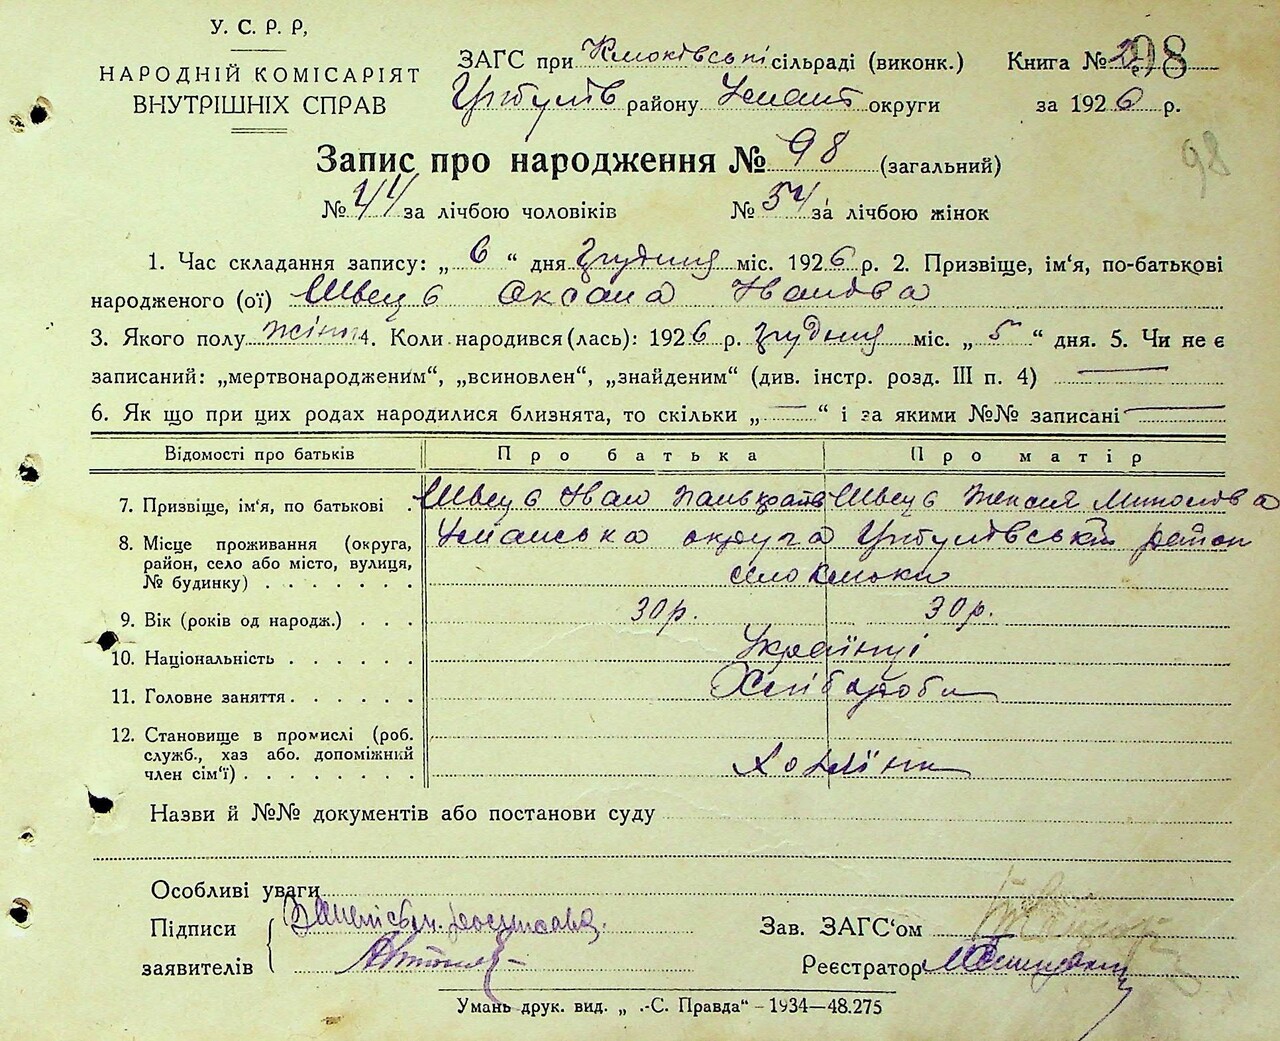 У. С. Р. Р,
НАРОДНІЙ КОМІСАРІЯТ
ВНУТРІШНІХ СПРАВ
ЗАГС при сільраді (виконк.) Книга № 98
району Уманс округи за 1926 р.
98
Запис про народження № 98 (загальний)
№ 44 за лічбою чоловіків № 54 за лічбою жінок
1. Час складання запису: „ 6 “ дня Грудня міс. 1926 р. 2. Призвіще, ім'я, по-батькові
народженого (ої) Швець Оксана Іванова
3. Якого полу жіноч 4. Коли народився (лась): 1926 р. грудня міс. „ 5 “ дня. 5. Чи не є
записаний: „мертвонародженим“, „всиновлен“, „знайденим“ (див. інстр. розд. III п. 4) —
6. Як що при цих родах народилися близнята, то скільки „ — “ і за якими №№ записані —
Відомості про батьків Про батька Про матір
7. Призвіще, ім'я, по батькові . Швець Іван Швець
8. Місце проживання (округа, Уманська округа район
район, село або місто, вулиця,
№ будинку) . . . . . . . село
9. Вік (років од народж.) . . . 30 р. 30 р.
10. Національність . . . . . . Українці
11. Головне заняття . . . . . . Хлібороби
12. Становище в промислі (роб.
служб., хаз або. допоміжний
член сім'ї) . . . . . . . .
Назви й №№ документів або постанови суду
Особливі уваги
Підписи
Зав. ЗАГС'ом
заявителів
Реєстратор
Умань друк. вид. „ .-С. Правда“ – 1934—48.275